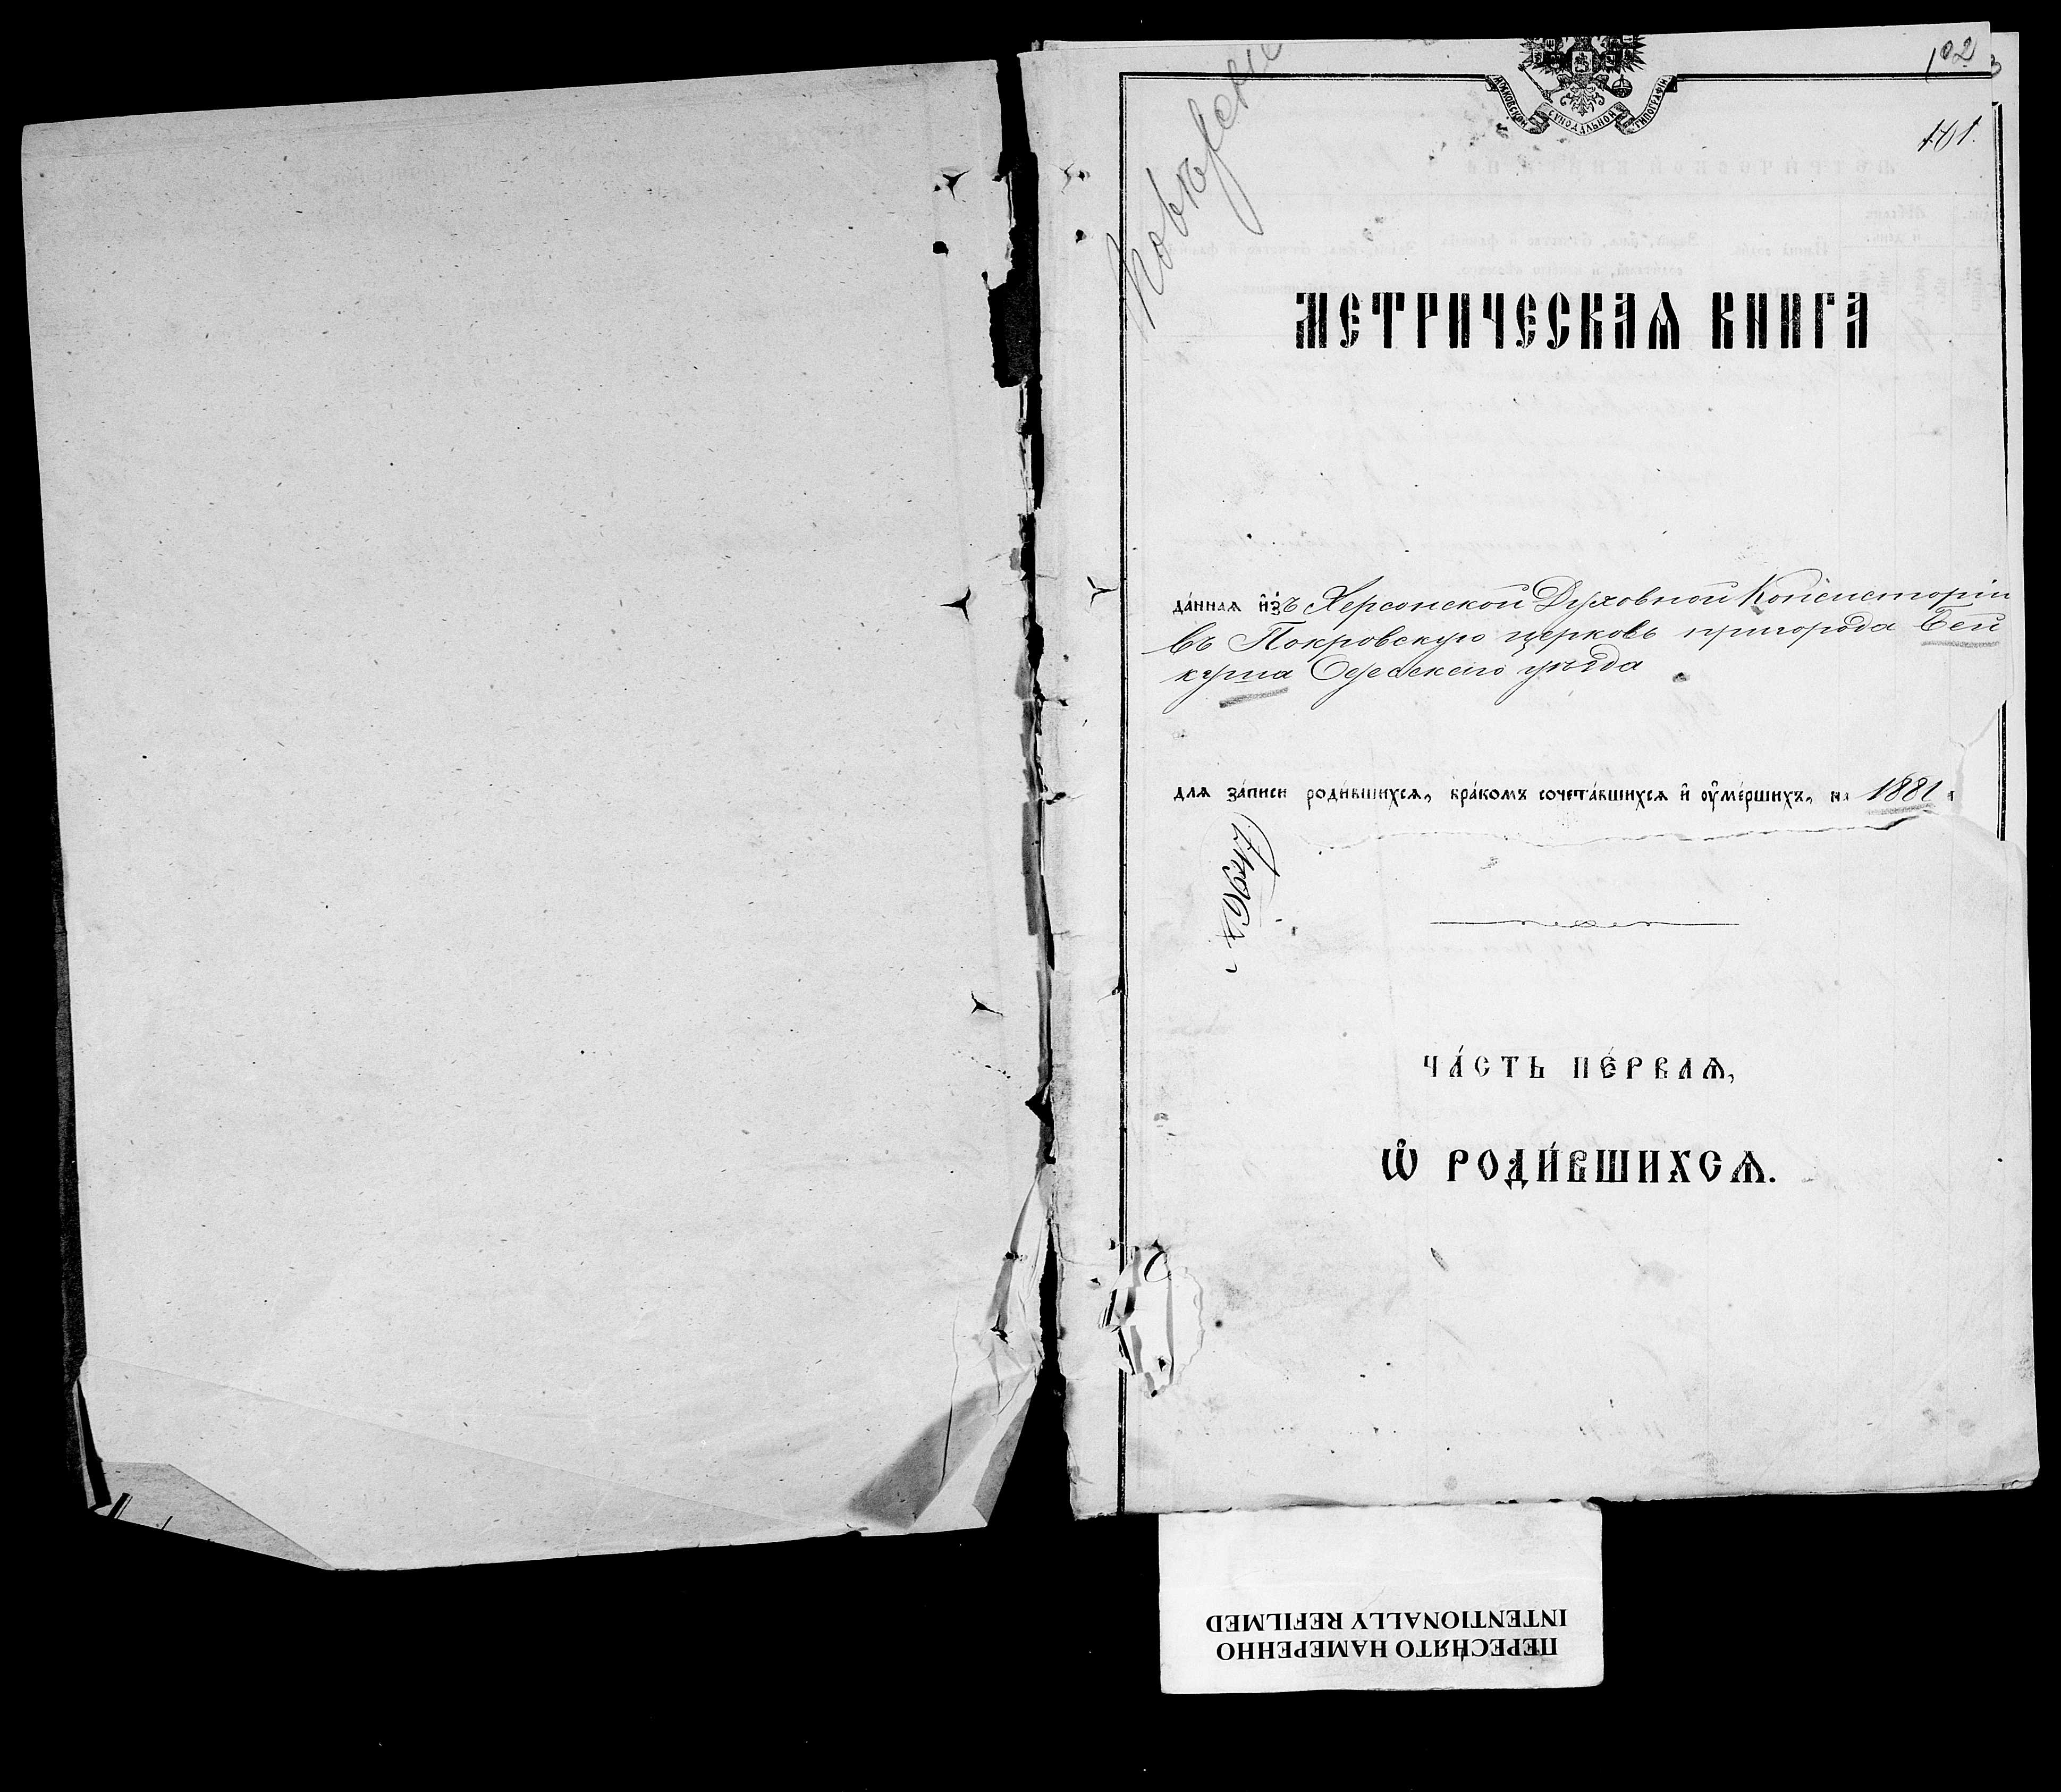 102
101.
МОСКОВСКОЙ СѴНОДАЛЬНОЙ ТИПОГРАФІИ
МЕТРИЧЕСКАѦ КНИГА
да́ннаѧ и҆зъ Херсонской Духовной Консисторіи
въ Покровскую церковь пригорода Бей
куша Одесскаго уѣзда
длѧ за́писи роди́вшихсѧ, бра́комъ сочета́вшихсѧ и҆ ᲂу҆ме́ршихъ, на 1881
ЧА́СТЬ ПЕ́РВАѦ,
Ѽ РОДИ́ВШИХСѦ.
ПЕРЕСНЯТО НАМЕРЕННО
INTENTIONALLY REFILMED